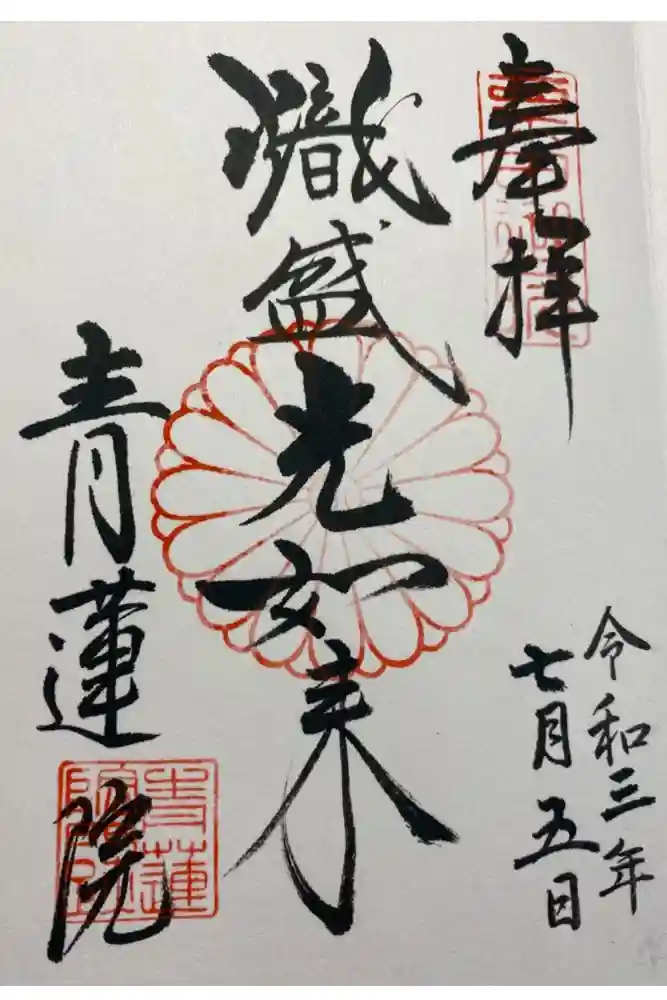 奉拝
令和三年
七月五日
熾盛光如来
青蓮院
青蓮